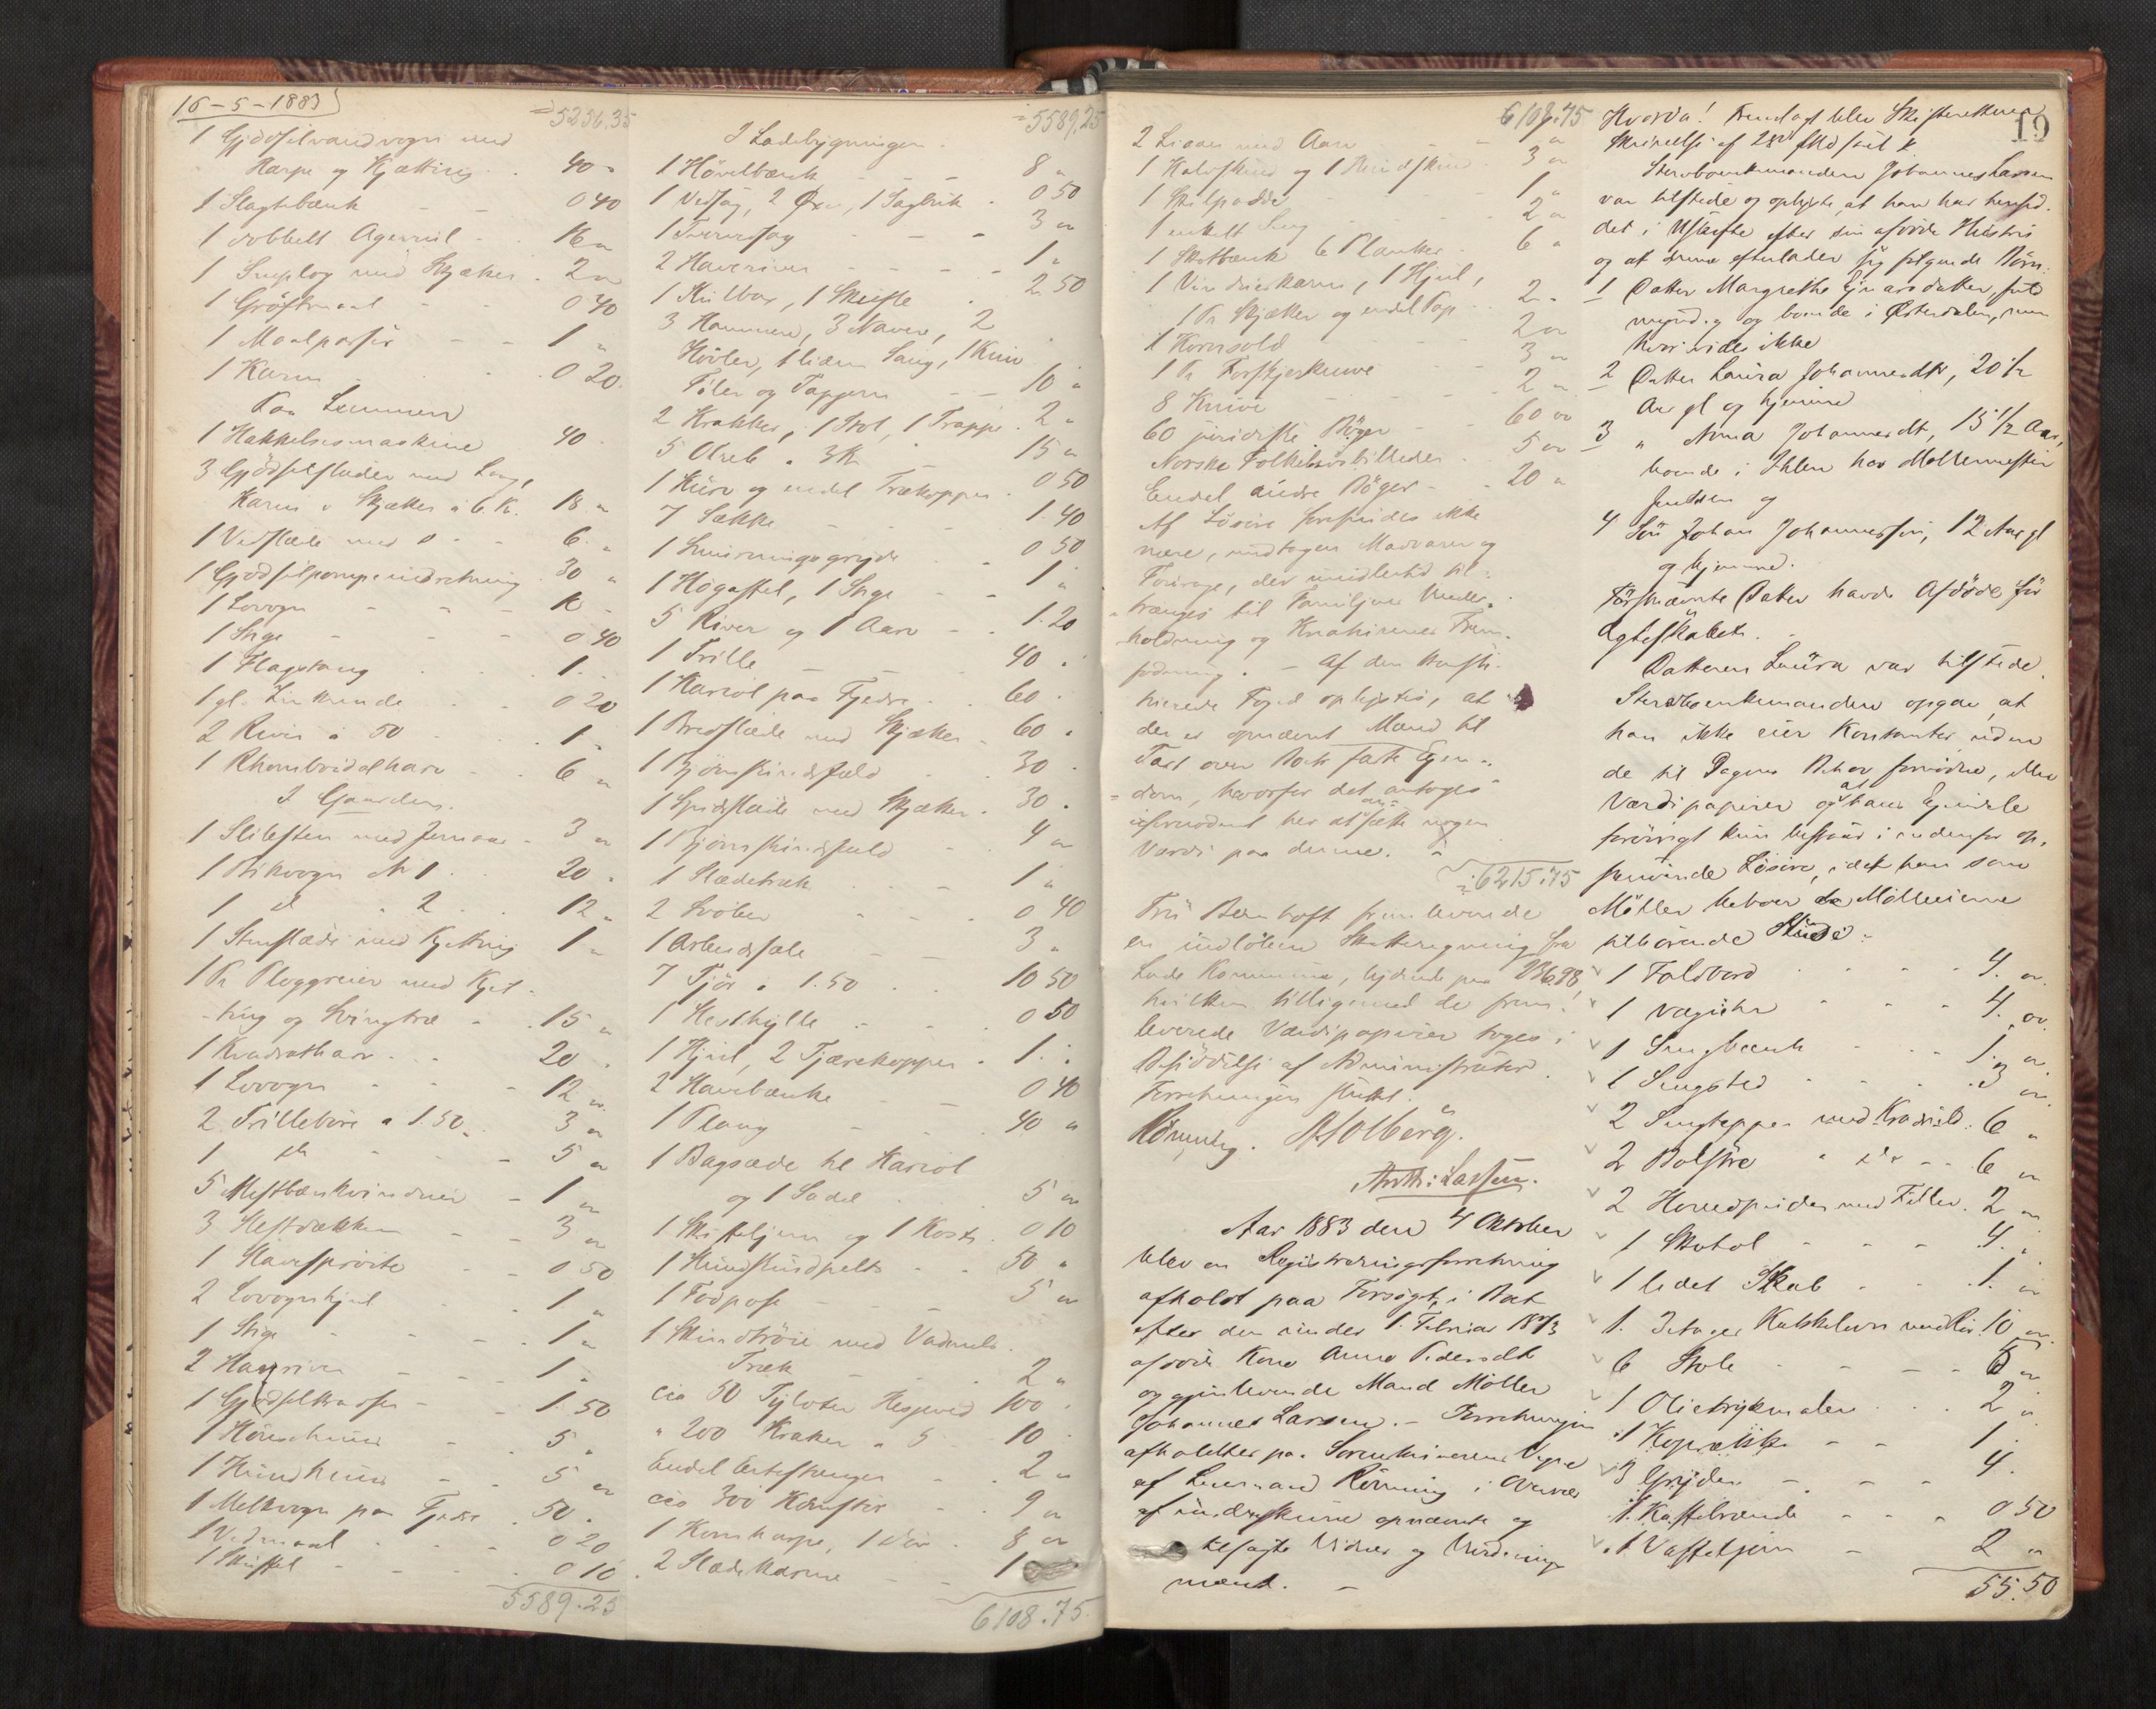 16-5-1883
5256.35
1 Gjødselvandvogn med
Harpe og Kjætting 40 "
1 Slagtebænk 0 40
1 dobbelt Agerriil 16 "
1 Sneplog med Skjæker 2 "
1 Grøftmaal 0 40
1 Maalpasser 1 "
1 Karm 0 20
Paa Lemmen
1 Hakkelsesmaskine 40
3 Gjødselslæder med Lang,
Karm & Skjæker a 6 Kr. 18 "
1 Vedslæde med d° 6 "
1 Gjødselpompeindretning 30 "
1 Lovogn 12 -
1 Stige 0 40
1 Flagstang 1.
1 gl. Zinkrende 0 20
2 River a 50 1 "
1 Rhomboidalharv 6 "
I Gaarden.
1 Slibesten med Jernaas 3 "
1 Arbvogn N 1 20 "
1 d° " 2 12 "
1 Stenslæde med Kjetting 1 "
1 Pr Ploggreier med Kjet-
ting og Svingtræ 15 "
1 Kvadratharv 20 "
1 Lovogn 12 "
2 Trillebøre a 1.50 3 "
1 do 5 "
5 Mestbænkvinduer 1 "
3 Hestdækken 3 "
1 Havesprøite 0 50
2 Lovognhjul 1 "
1 Stige 1 "
2 Hageriver 1 "
1 Gjødselkasse 1 50
1 Hønsehuus 5 "
1 Hundehuus 5 "
1 Melkvogn paa Fjedre 50 "
1 Vedmaal 0 20
1 Skuffel 0 10
5589.25
5589.25
I Ladebygningen.
1 Høvelbænk 8 "
1 Vedsag, 2 Øxer, 1 Sagbuk 0 50
1 Tverrsag 3 "
2 Haveriver 1 "
1 Kulbor, 1 Skuffe 2.50
3 Hammere, 3 Navere, 2
Høvler, 1 liden Saug, 1 Kniv
Filer og Tappern 10 "
2 Krakker, 1 Stol, 1 Trappe 2 "
5 Olreb a 3 Kr 15 "
1 Kurv og endel Trækopper 0 50
7 Sække 1.40
1 Smurningsgryde 0 50
1 Høgaffel, 1 Stige 1 "
5 River og 1 Aare 1.20
1 Trille 40 "
1 Kariol paa Fjedre 60 "
1 Bredslæde med Skjæker 60 "
1 Bjørnskindsfeld 30 "
1 Spidsslæde med Skjæker 30 "
1 Bjørnskindsfeld 4 "
1 Slædetræk 1 "
2 Svøber 0 40
1 Arbeidssele 3 "
7 Tjør a 1.50 10 50
1 Hesthylle 0 50
1 Hjul, 2 Tjærekopper 1 "
2 Havebænke 0 40
1 Plaug 40 "
1 Bagsæde til Kariol
og 1 Sadel 5 "
1 Skuffeljern og 1 Kost 0 10
1 Hundskindpelts 50 "
1 Fodpose 5 "
1 Skindtrøie med Vadmels
Træk 2 "
cia 50 Tylvter Hesjeved 100 "
" 200 Kraker a 5 10
Endel Ertestenger 2 "
cia 300 Kornstør 9 "
1 Kornharpe, 1 dør 8 "
2 Slædekarme 1
6108.75
6108.75
2 Liaaer med Aare 1 "
1 Kalvskind og 1 Hundskind 3 "
1 Skilpadde 1 "
1 enkelt Seng 2 "
1 Skotbænk 6 Planker 6 "
1 Vindueskarm, 1 Hjul,
1 Pr Skjæker og endel Pap 2 "
1 Kornsold 2 "
1 Pr Forskjærknive 3 "
8 Knive 2 "
60 juridiske Bøger 60 "
Norske Folkelivsbilleder 5 "
Endel andre Bøger 20 "
Af Løsøre forefandtes ikke
mere, undtagen Madvarer og
Fourage, der imidlertid til-
trænges til Familjens Under-
holdning og Kreaturenes Frem-
fødning. - Af den konsti-
tuerede Foged oplystes, at
der er opnævnt Mænd til
Taxt over Boets faste Egen-
dom, hvorfor det antoges
ufornødent her at ansætte nogen
Værdi paa denne.
6215.75
Fru Bernhoft fremleverede
en indløben Skatteregning fra
Lade Kommune, lydende paa 236.98,
hvilken tilligemed de frem-
leverede Værdipapirer toges i
Besiddelse af Administrator.
Forretningen sluttet.
Rønning. A Solberg.
Anth: Lassen.
Aar 1883 den 4 Oktober
blev en Registreringsforretning
afholdt paa Forsøget, i Boet
efter den under 1. Februar 1873
afdøde Kone Anne Pedersdtr
og gjenlevende Mand Møller
Johannes Larsen. - Forretningen
afholdtes paa Sorenskriverens Vegne
af Lensmand Rønning i Overvær
af underskrevne opnævnte og
tilsagte Vidner og Vurderings-
mænd.
19
Hvorda! Fremlagt blev Skifterettens
Skrivelse af 28de f Md saal.
Stervboenkemanden Johannes Larsen
var tilstede og oplyste, at han har hensid-
det i Uskifte efter sin afdøde Hustru
og at denne efterlader sig følgende Børn:
1 Datter Margrethe Ejnarsdatter, fuld
myndig og boende i Østerdalen, men
hvor vides ikke
2 Datter Laura Johannesdtr, 20 1/2
Aar gl og hjemme
3 " Anna Johannesdt, 15 1/2 Aar,
boende i Ihlen hos Møllemester
Knudsen og
4 Søn Johan Johannessen, 12 Aar gl
og hjemme.
Førstnævnte Datter havde Afdøde før
Ægteskabet.
Datteren Laura var tilstede.
Stervboenkemanden opgav, at
han ikke eier Kontanter uden
de til Dagens Behov fornødne, eller
Værdipapirer og at hans Eiendele
forøvrigt kun bestaar i nedenfor op-
skrevende Løsøre, idet han som
Møller beboer de Mølleeierne
tilhørende Huse:
1 Foldbord 4. "
1 Vægühr 4. "
1 Sengbænk 1. "
1 Sengsted 3 "
2 Sengtepper med Kradsuld 6 "
2 Bolstre " do 6 "
2 Hovedputer med Filler 2 "
1 Skatol 4. "
1 lidet Skab 1. "
1. 3 etages Kakkelovn med Rør 10 "
6 Stole 5 "
1 Olietryksmaleri 2 "
1 Kopræike 1.
3 Gryder 4.
1 Kaffebrænder 0 50
1 Vaffeljern 2 "
55.50